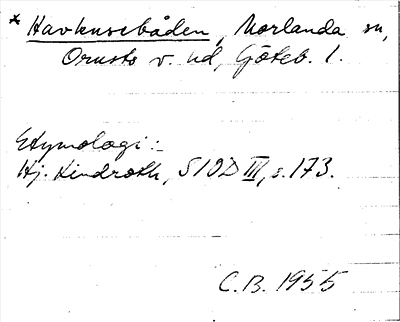 * Havknsebåden, Morlanda sn,
Orusts v. hd, Göteb. l.
Etymologi:
Hj. Lindroth, SIOD III, s. 173.
C.B. 1955